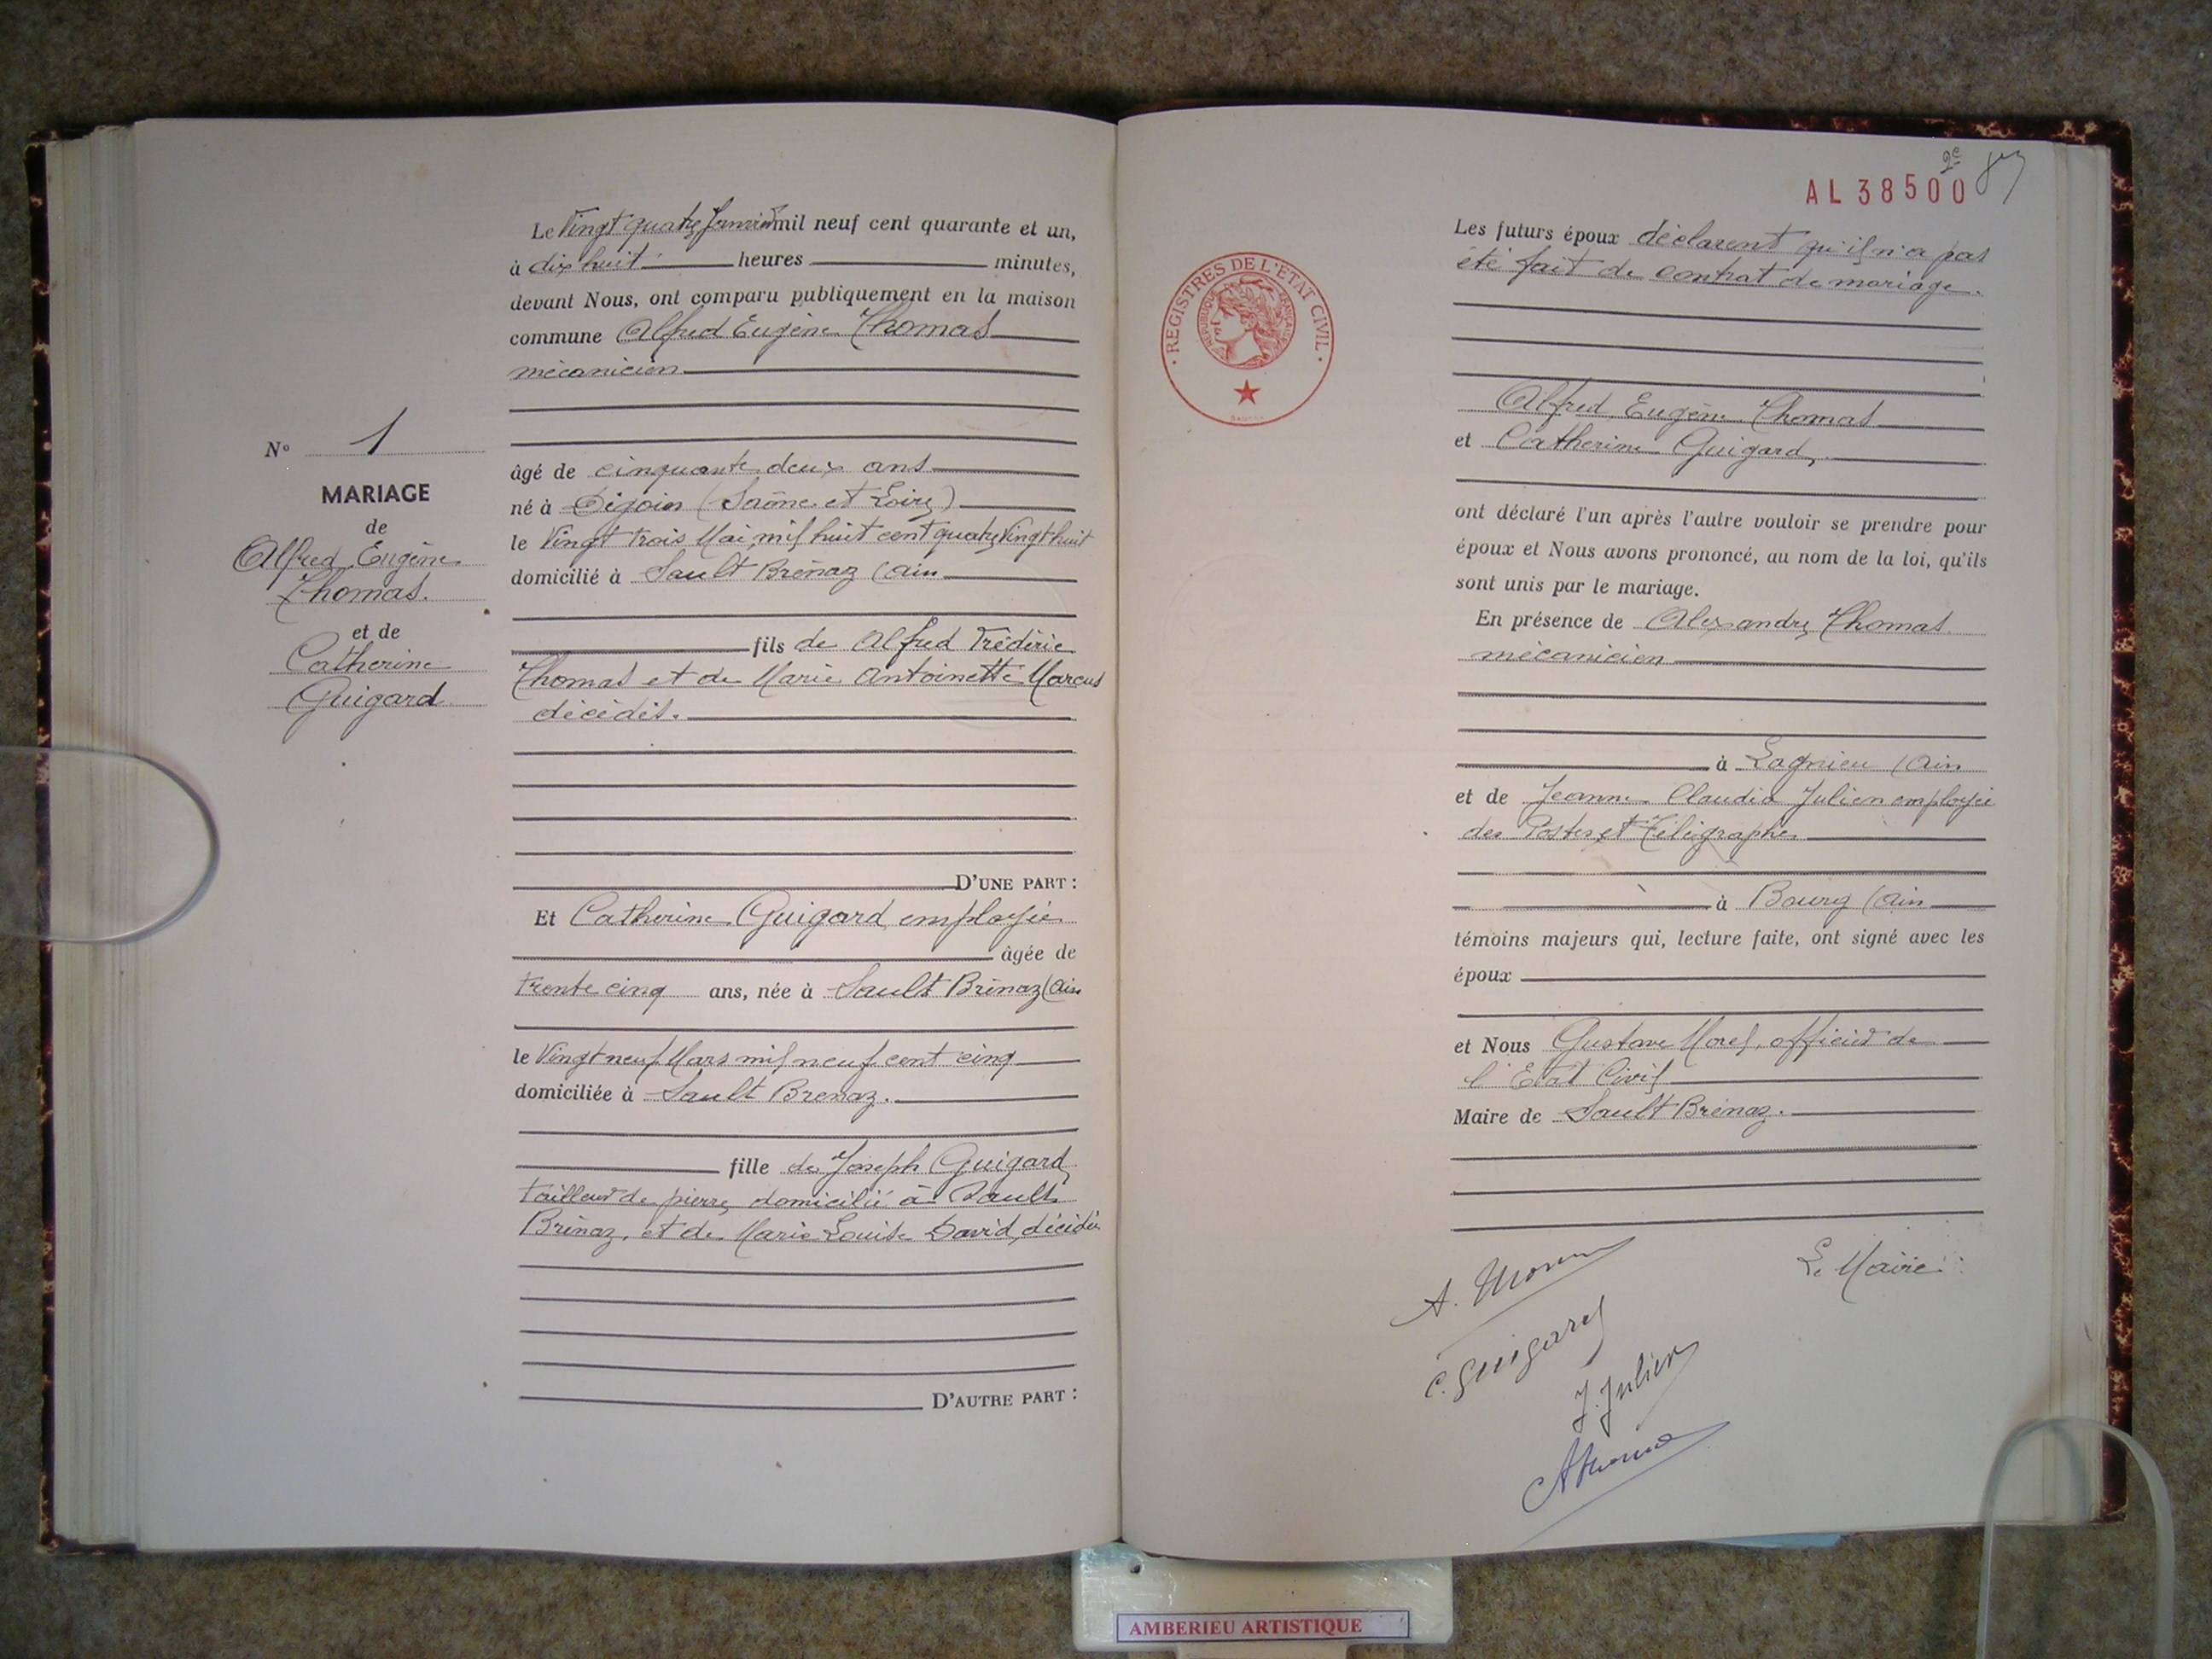 N° 1
MARIAGE
de
Alfred Eugène
Thomas.
et de
Catherine
Guigard
Le Vingt quatre Janvier mil neuf cent quarante et un,
à dix huit heures minutes,
devant Nous, ont comparu publiquement en la maison
commune Alfred Eugène Thomas
mécanicien
âgé de cinquante deux ans
né à Digoin (Saône et Loire)
le Vingt trois Mai mil huit cent quatre Vingt huit
domicilié à Sault Brénaz (Ain
fils de Alfred Frédéric
Thomas et de Marie Antoinette Marcus
décédés.
D'UNE PART :
Et Catherine Guigard employée
âgée de
trente cinq ans, née à Sault Brénaz (Ain
le Vingt neuf Mars mil neuf cent cinq
domiciliée à Sault Brenaz.
fille de Joseph Guigard
tailleur de pierre, domicilié à Sault
Brénaz, et de Marie Louise David, décédée
D'AUTRE PART :
AL 38500
2e
REGISTRES DE L'ETAT CIVIL
REPUBLIQUE FRANÇAISE
Les futurs époux déclarent qu'il n'a pas
été fait de contrat de mariage.
Alfred Eugène Thomas
et Catherine Guigard,
ont déclaré l'un après l'autre vouloir se prendre pour
époux et Nous avons prononcé, au nom de la loi, qu'ils
sont unis par le mariage.
En présence de Alexandre Thomas
mécanicien
à Lagnieu (Ain
et de Jeanne Claudia Julien employée
des Postes et Télégraphes
à Bourg (Ain
témoins majeurs qui, lecture faite, ont signé avec les
époux
et Nous Gustave Morel, officier de
l'Etat Civil
Maire de Sault Brénaz.
Le Maire :
C. Guigard
J. Julien
AThomas
AMBERIEU ARTISTIQUE